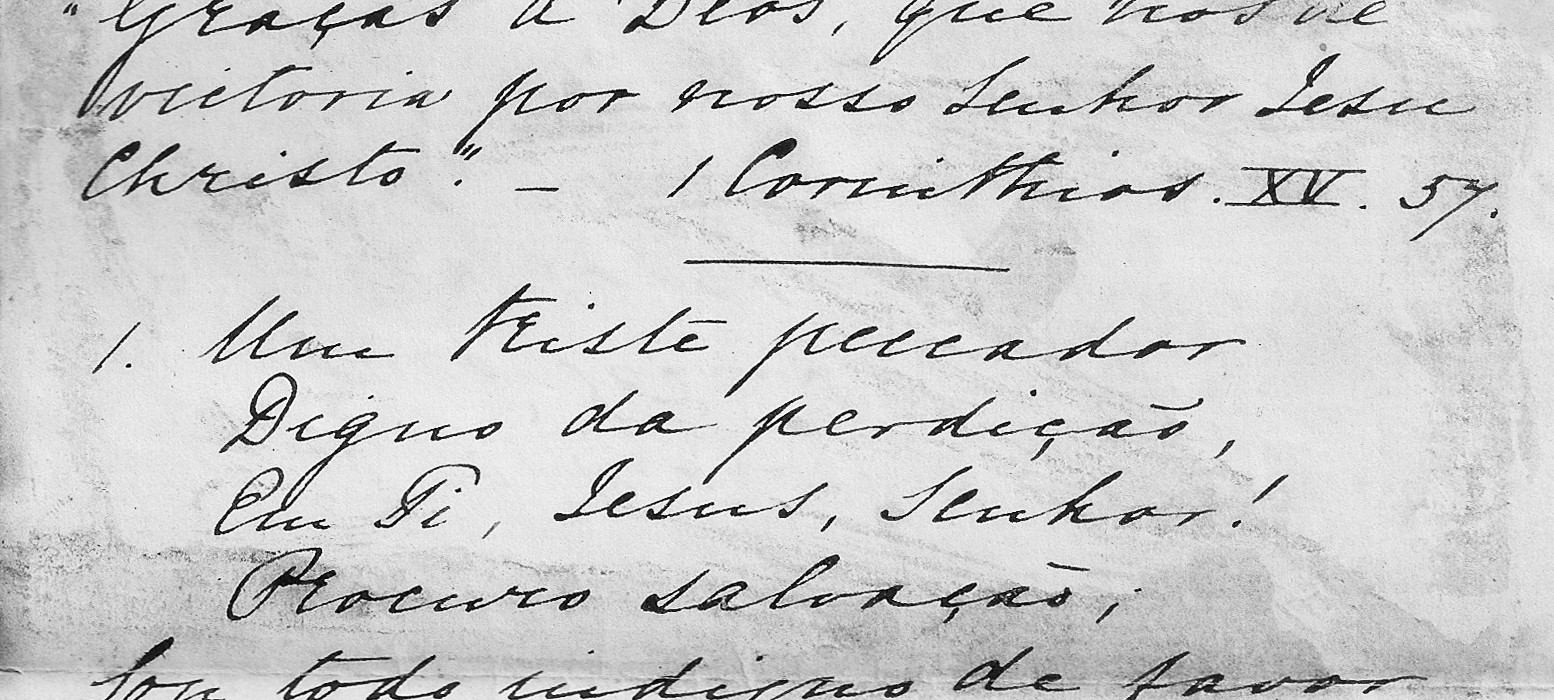 "Graças a Deos, que nos de
victoria por nosso Senhor Jesu
Christo". — 1 Corinthios. XV. 57.
1. Um triste peccador
Digno da perdição,
Em Ti, Jesus, Senhor!
Procuro salvação;
Sou todo indigno de favor